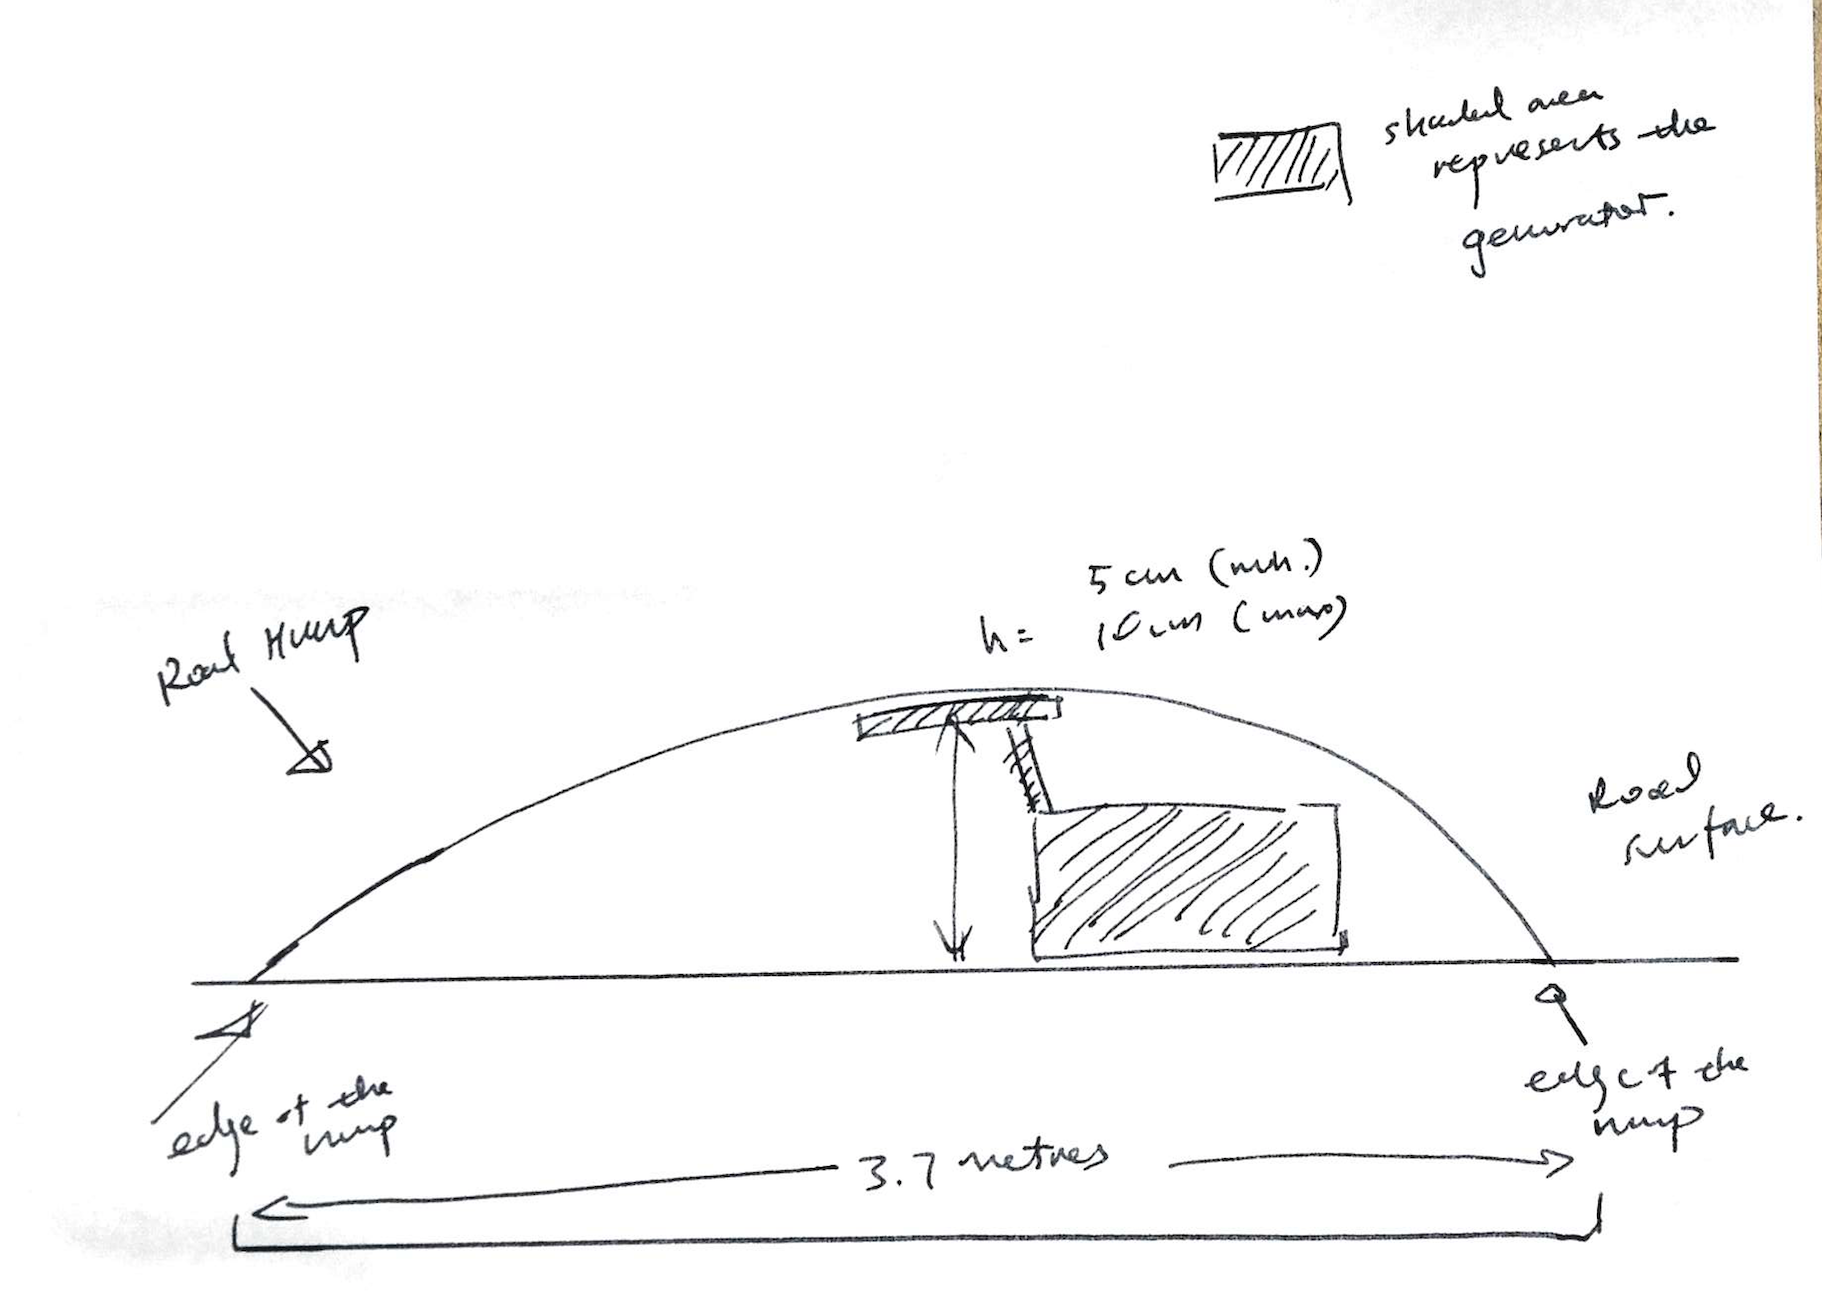 shaded area
represents the
generator.
5 cm (min.)
h = 10 cm (max)
Road Hump
Road
surface.
edge of the
hump
edge of the
hump
3.7 metres